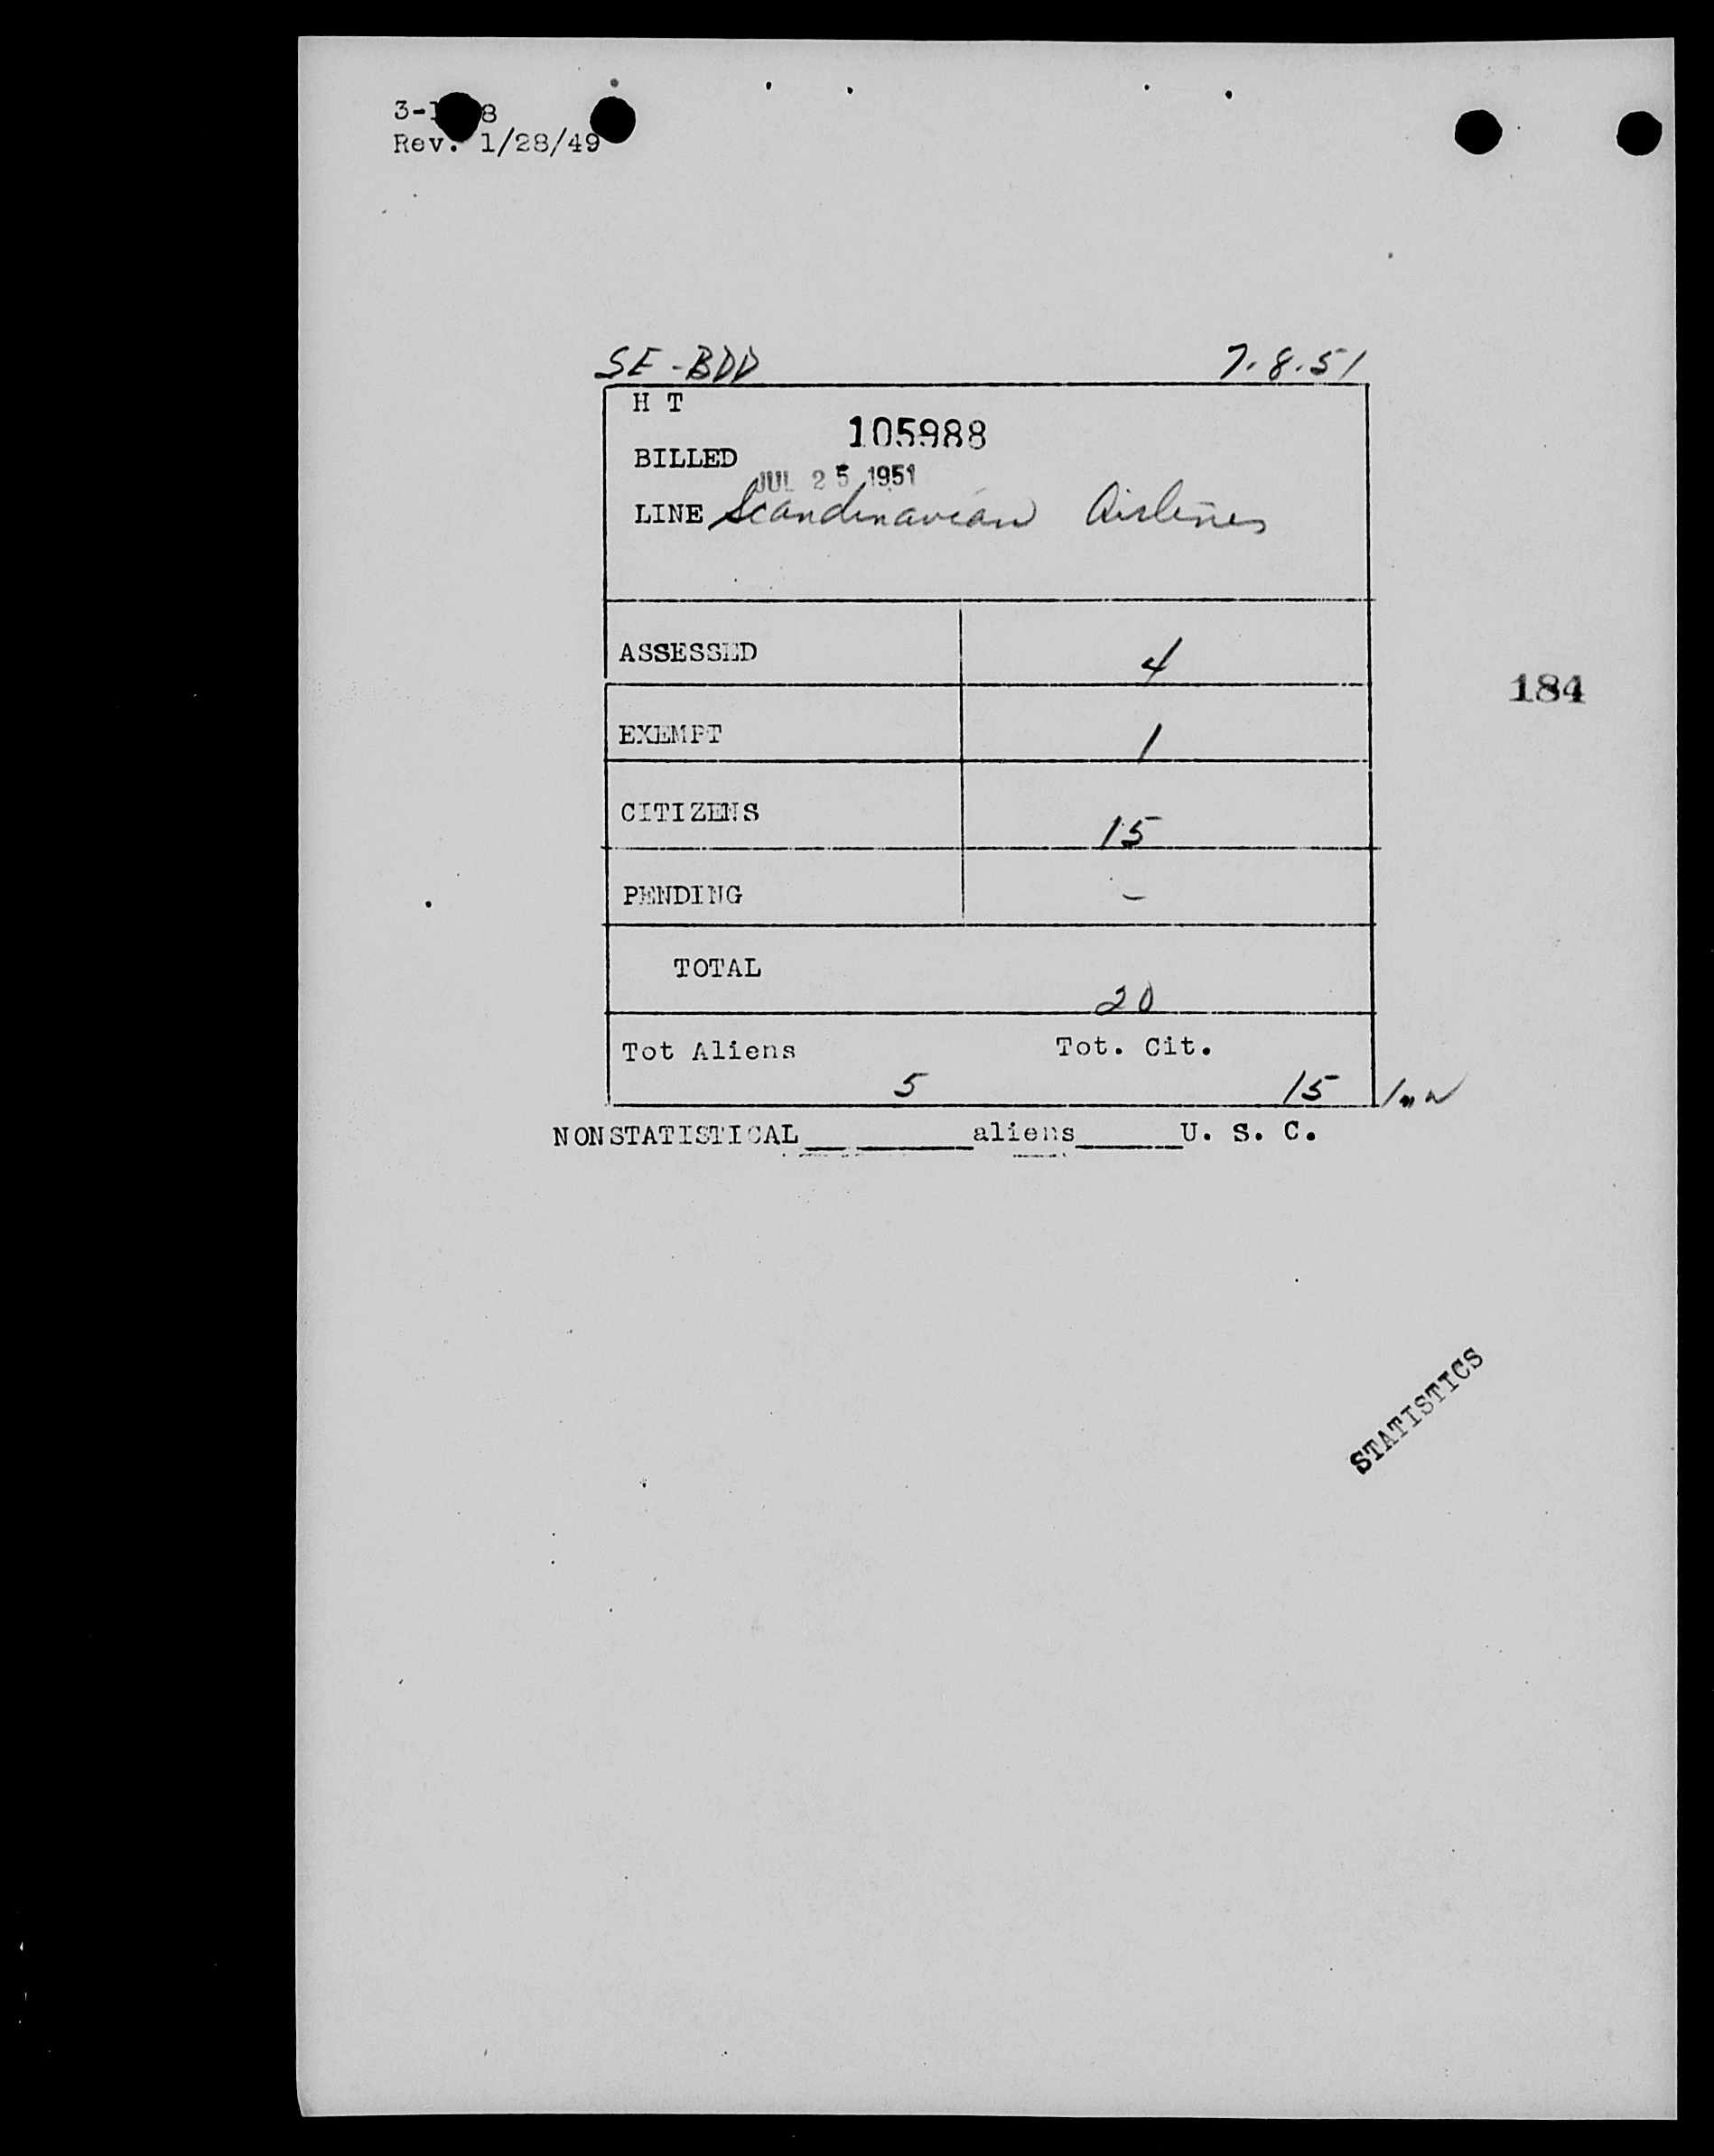 Rev. 1/28/49
SE-BDD 7.8.51
H T
105988
BILLED
JUL 25 1951
LINE Scandinavian Airlines
ASSESSED 4
184
EXEMPT 1
CITIZENS 15
PENDING -
TOTAL
20
Tot Aliens Tot. Cit.
5 15
NONSTATISTICAL aliens U. S. C.
STATISTICS